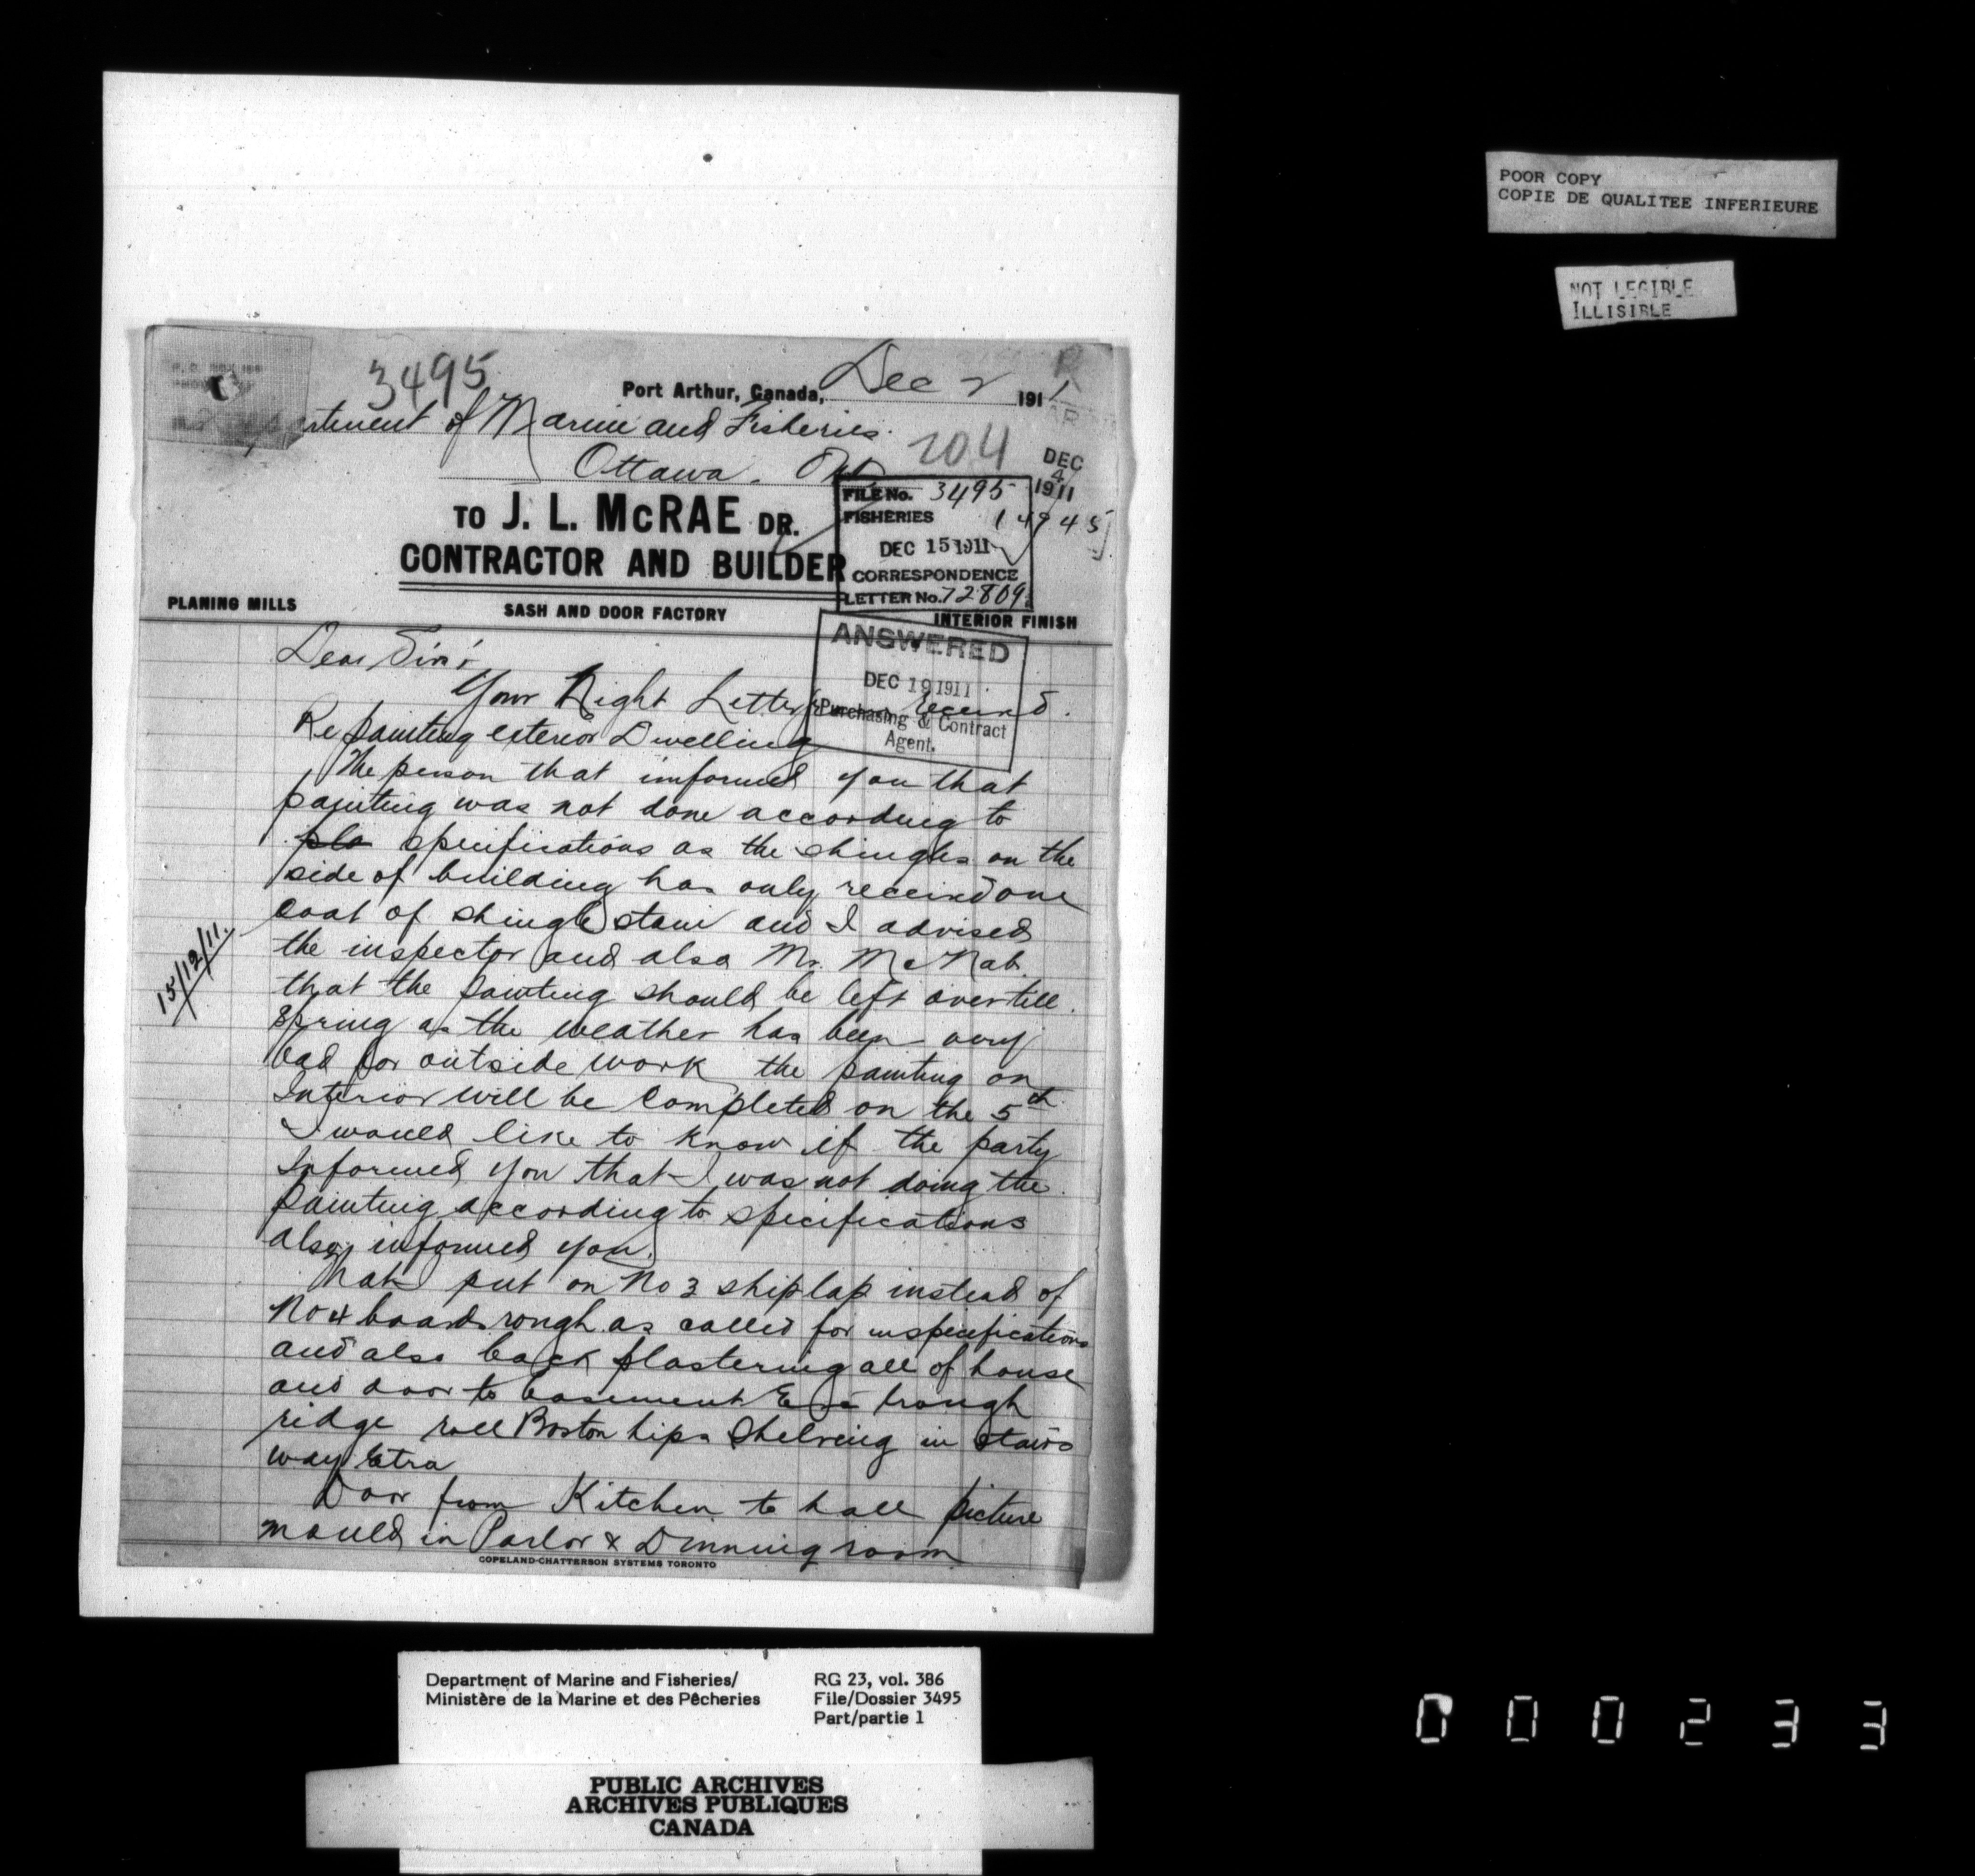 POOR COPY
COPIE DE QUALITEE INFERIEURE
NOT LEGIBLE
ILLISIBLE
3495
Port Arthur, Canada, Dec 2 1911
artment of Marine and Fisheries.
204
Ottawa. Ont
DEC
4
1911
TO J. L. McRAE DR.
CONTRACTOR AND BUILDER
FILE No. 3495
FISHERIES 14945
DEC 15 1911
CORRESPONDENCE
LETTER No. 72809
PLANING MILLS
SASH AND DOOR FACTORY
INTERIOR FINISH
ANSWERED
DEC 19 1911
Purchasing & Contract
Agent.
Dear Sir:
Your Night Letter received.
Re painting exterior Dwelling
The person that informed you that
painting was not done according to
pla specifications as the shingles on the
side of building has only received one
coat of shingle stain and I advised
the inspector and also Mr. McNab.
that the painting should be left over till
spring as the weather has been very
bad for outside work the painting on
Interior will be completed on the 5th
I would like to know if the party
Informed you that I was not doing the
painting according to specifications
also informed you.
that I put on No 3 shiplap instead of
No 4 boards rough as called for in specifications
and also back plastering all of house
and door to basement Eve trough
ridge roll Boston hips Shelving in stairs
way Extra
Door from Kitchen to hall picture
mould in Parlor & Dinning room
15/12/11.
COPELAND-CHATTERSON SYSTEMS TORONTO
Department of Marine and Fisheries/
Ministère de la Marine et des Pêcheries
RG 23, vol. 386
File/Dossier 3495
Part/partie 1
PUBLIC ARCHIVES
ARCHIVES PUBLIQUES
CANADA
000233